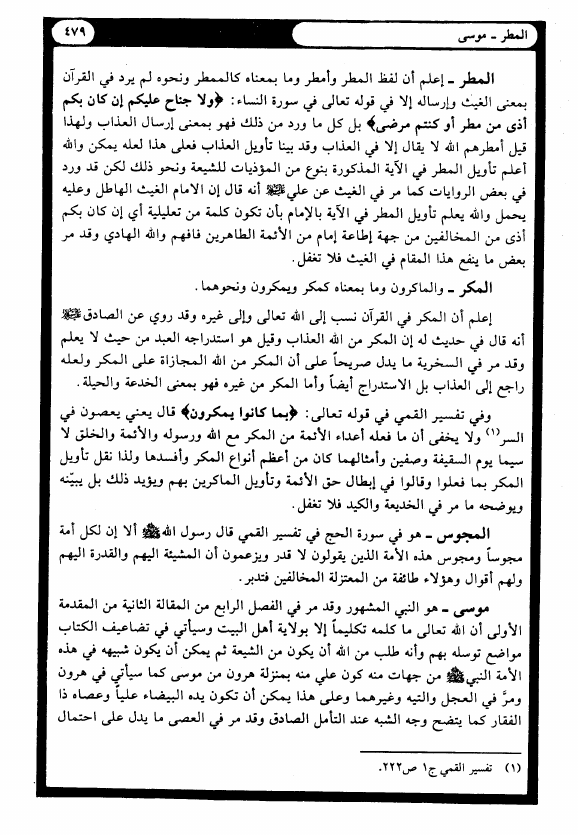 المطر ـ موسى ٤٧٩
المطر ـ إعلم أن لفظ المطر وأمطر وما بمعناه كالممطر ونحوه لم يرد في القرآن
بمعنى الغيث وإرساله إلا في قوله تعالى في سورة النساء: ﴿ولا جناح عليكم إن كان بكم
أذى من مطر أو كنتم مرضى﴾ بل كل ما ورد من ذلك فهو بمعنى إرسال العذاب ولهذا
قيل أمطرهم الله لا يقال إلا في العذاب وقد بينا تأويل العذاب فعلى هذا لعله يمكن والله
أعلم تأويل المطر في الآية المذكورة بنوع من المؤذيات للشيعة ونحو ذلك لكن قد ورد
في بعض الروايات كما مر في الغيث عن علي ﷺ أنه قال إن الامام الغيث الهاطل وعليه
يحمل والله يعلم تأويل المطر في الآية بالإمام بأن تكون كلمة من تعليلية أي إن كان بكم
أذى من المخالفين من جهة إطاعة إمام من الأئمة الطاهرين فافهم والله الهادي وقد مر
بعض ما ينفع هذا المقام في الغيث فلا تغفل.
المكر ـ والماكرون وما بمعناه كمكر ويمكرون ونحوهما.
إعلم أن المكر في القرآن نسب إلى الله تعالى وإلى غيره وقد روي عن الصادق ﷺ
أنه قال في حديث له إن المكر من الله العذاب وقيل هو استدراجه العبد من حيث لا يعلم
وقد مر في السخرية ما يدل صريحاً على أن المكر من الله المجازاة على المكر ولعله
راجع إلى العذاب بل الاستدراج أيضاً وأما المكر من غيره فهو بمعنى الخدعة والحيلة.
وفي تفسير القمي في قوله تعالى: ﴿بما كانوا يمكرون﴾ قال يعني يعصون في
السر(١) ولا يخفى أن ما فعله أعداء الأئمة من المكر مع الله ورسوله والأئمة والخلق لا
سيما يوم السقيفة وصفين وأمثالهما كان من أعظم أنواع المكر وأفسدها ولذا نقل تأويل
المكر بما فعلوا وقالوا في إبطال حق الأئمة وتأويل الماكرين بهم ويؤيد ذلك بل يبيّنه
ويوضحه ما مر في الخديعة والكيد فلا تغفل.
المجوس ـ هو في سورة الحج في تفسير القمي قال رسول الله ﷺ ألا إن لكل أمة
مجوساً ومجوس هذه الأمة الذين يقولون لا قدر ويزعمون أن المشيئة اليهم والقدرة اليهم
ولهم أقوال وهؤلاء طائفة من المعتزلة المخالفين فتدبر.
موسى ـ هو النبي المشهور وقد مر في الفصل الرابع من المقالة الثانية من المقدمة
الأولى أن الله تعالى ما كلمه تكليماً إلا بولاية أهل البيت وسيأتي في تضاعيف الكتاب
مواضع توسله بهم وأنه طلب من الله أن يكون من الشيعة ثم يمكن أن يكون شبيهه في هذه
الأمة النبي ﷺ من جهات منه كون علي منه بمنزلة هرون من موسى كما سيأتي في هرون
ومرَّ في العجل والتيه وغيرهما وعلى هذا يمكن أن تكون يده البيضاء علياً وعصاه ذا
الفقار كما يتضح وجه الشبه عند التأمل الصادق وقد مر في العصى ما يدل على احتمال
(١) تفسير القمي ج١ ص٢٢٢.